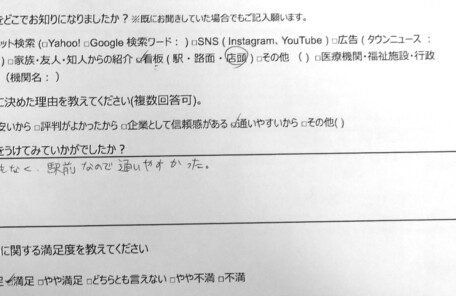 をどこでお知りになりましたか？※既にお聞きしていた場合でもご記入願います。
ット検索 (□Yahoo! □Google 検索ワード： ) □SNS ( Instagram、YouTube ) □広告 ( タウンニュース ：
) □家族・友人・知人からの紹介 ☑看板 ( 駅・路面・店頭 ) □その他 （ ) □医療機関・福祉施設・行政
（機関名： )
に決めた理由を教えてください(複数回答可)。
安いから □評判がよかったから □企業として信頼感がある ☑通いやすいから □その他( )
をうけてみていかがでしたか？
もなく、駅前なので通いやすかった。
に関する満足度を教えてください
足 ☑満足 □やや満足 □どちらとも言えない □やや不満 □不満